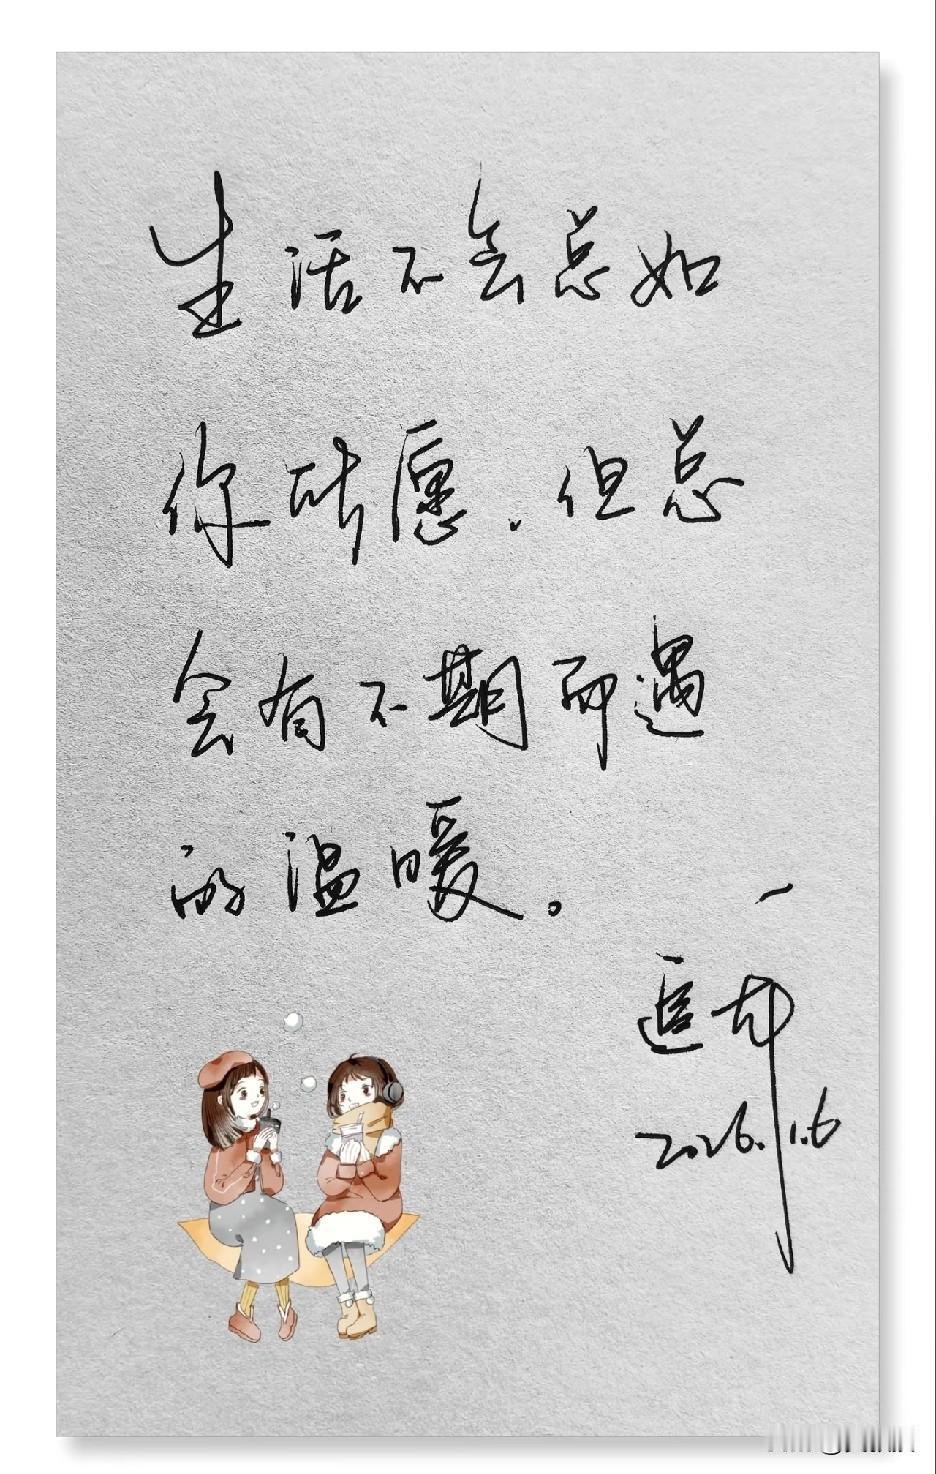 生活不会总如
你所愿,但总
会有不期而遇
的温暖。
2026.1.6